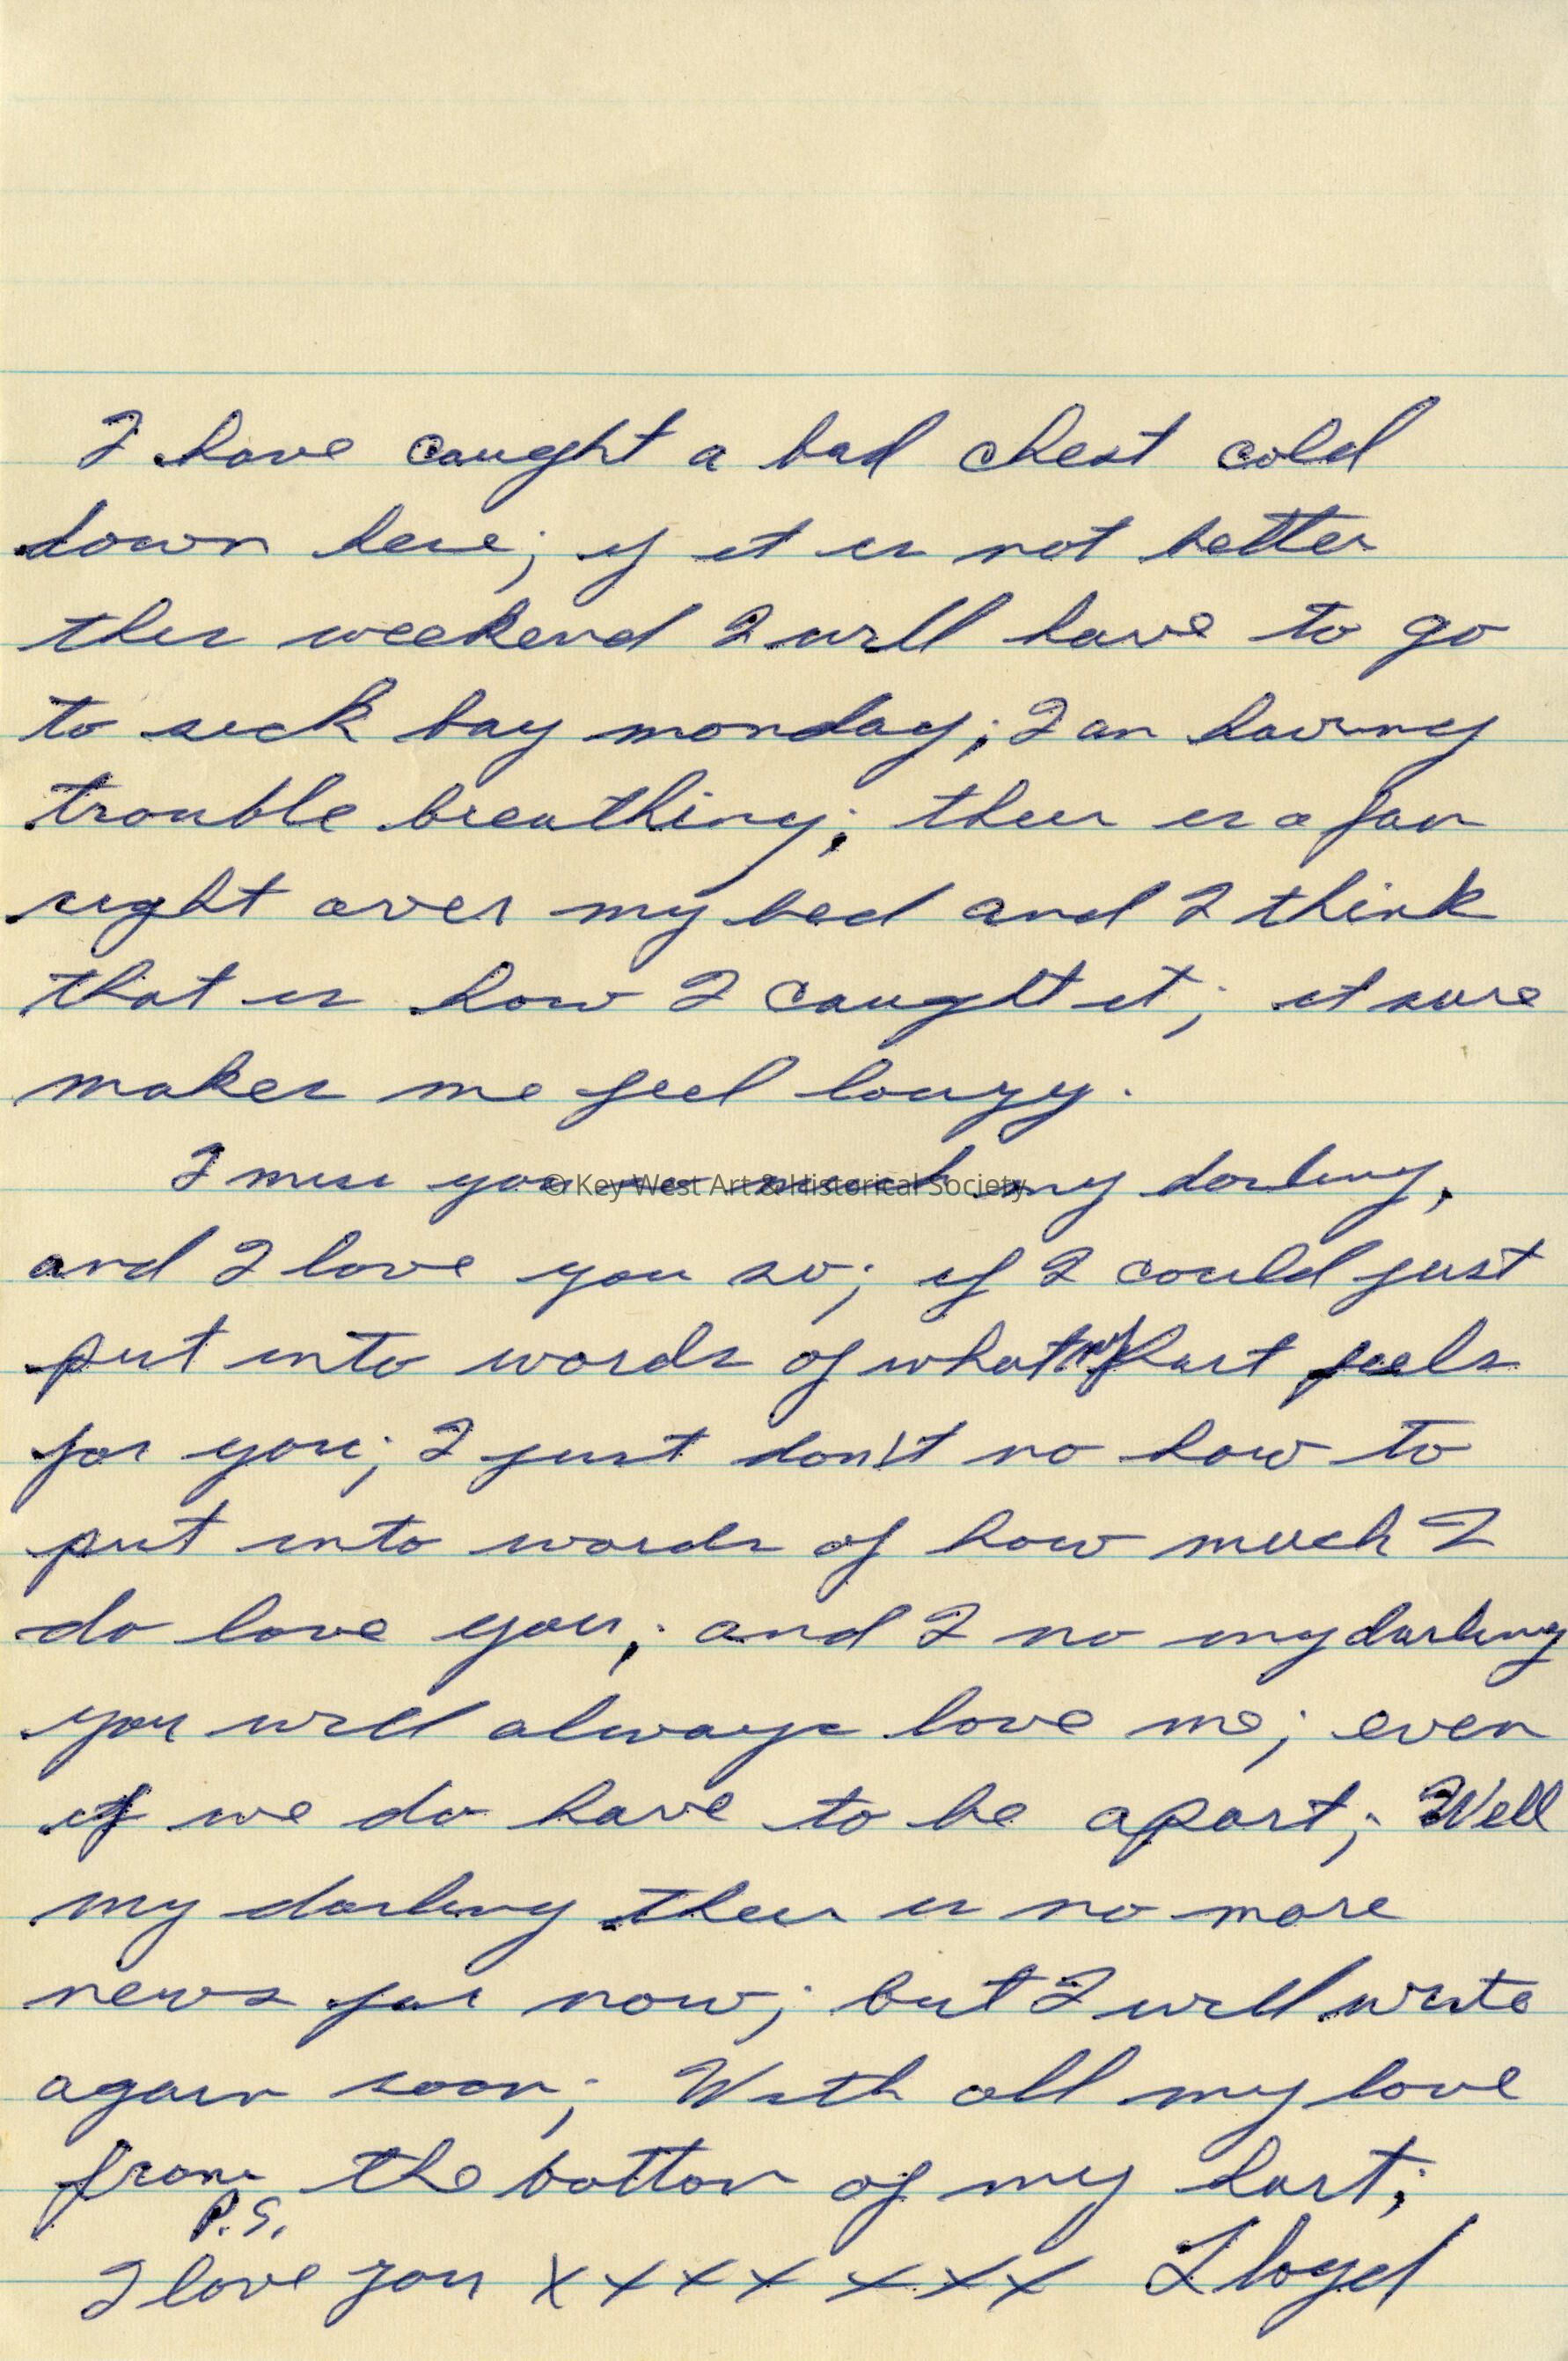 I have caught a bad chest cold
down here; if it is not better
this weekend I will have to go
to sick bay monday; I am having
trouble breathing; their is a fan
right over my bed and I think
that is how I caught it; it sure
makes me feel louzy.
I miss you so much my darling,
© Key West Art & Historical Society
and I love you so; if I could just
put into words of what my hart feels
for you; I just don't no how to
put into words of how much I
do love you; and I no my darling
you will always love me; even
if we do have to be apart; Well
my darling their is no more
news for now; but I will write
again soon; With all my love
from the bottom of my hart;
P.S.
I love you x x x x x x x Lloyd